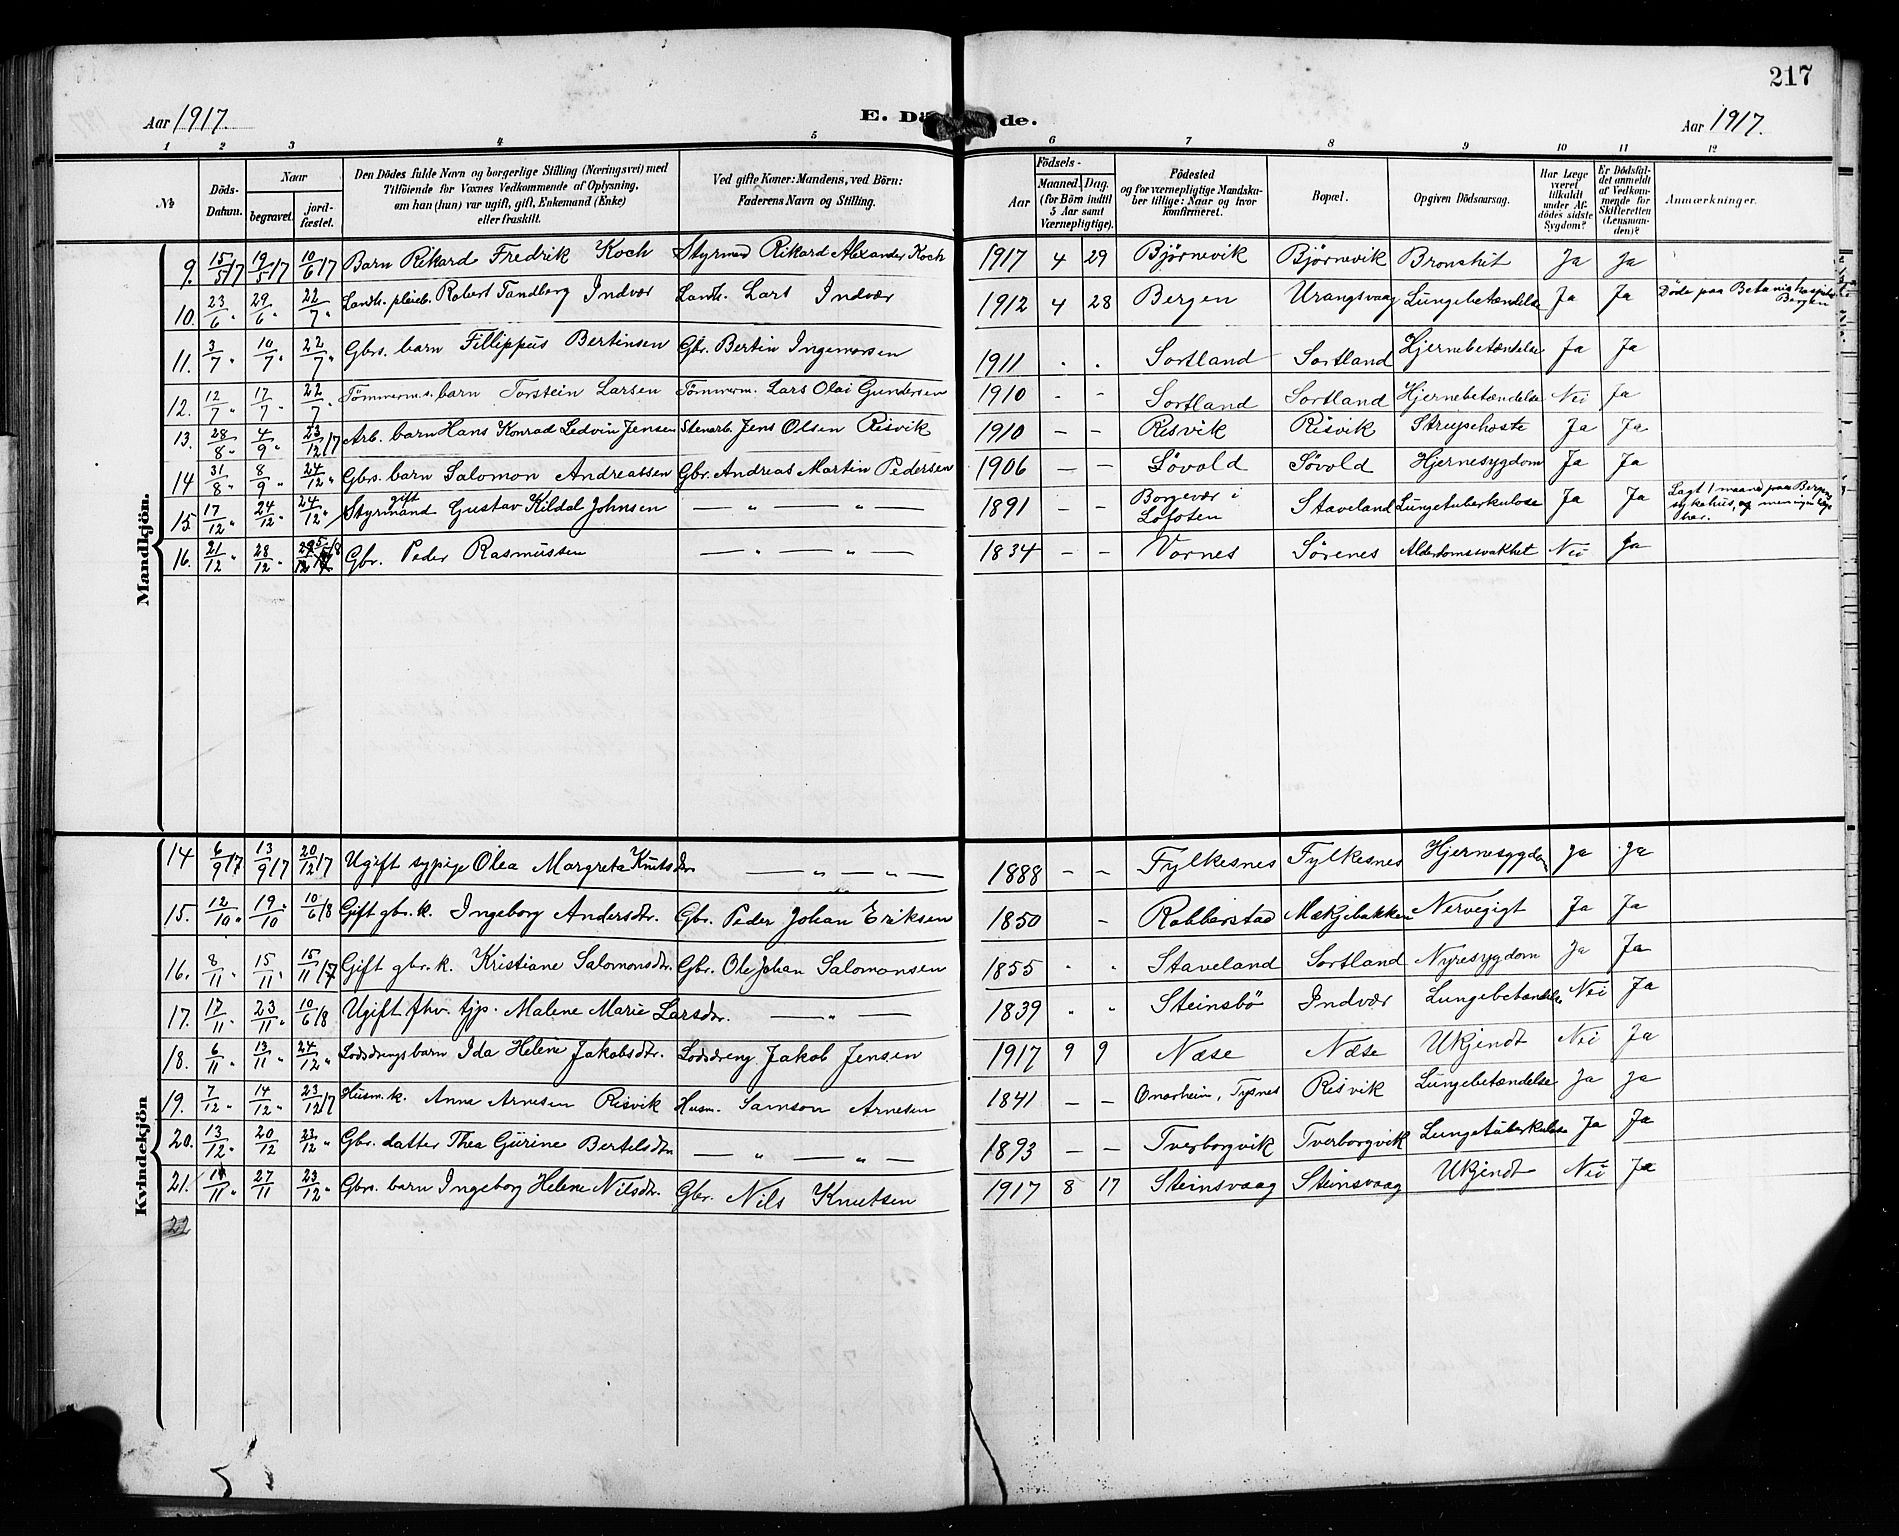 217
Aar 1917. E. Dö de. Aar 1917.
1 2 3 4 5 6 7 8 9 10 11 12
No
Döds-Datum.
Naar
begravet.
jord-fæstet.
Den Dödes fulde Navn og borgerlige Stilling (Næringsvei) med
Tilföiende for Voxnes Vedkommende af Oplysning,
om han (hun) var ugift, gift, Enkemand (Enke)
eller fraskilt.
Ved gifte Koner: Mandens, ved Börn:
Faderens Navn og Stilling.
Födsels-
Aar
Maaned. Dag.
(for Börn indtil
5 Aar samt
Værnepligtige).
Födested
og for værnepligtige Mandska-
ber tillige: Naar og hvor
konfirmeret.
Bopæl.
Opgiven Dödsaarsag.
Har Læge
været
tilkaldt
under Af-
dödes sidste
Sygdom?
Er Dödsfal-
det anmeldt
af Vedkom-
mende for
Skifteretten
(Lensman-
den)?
Anmærkninger.
Mandkjön.
9. 15/5 17 19/5 17 10/6 17 Barn Rikard Fredrik Koch Styrmand Rikard Alexander Koch 1917 4 29 Björnevik Björnevik Bronchit Ja Ja
10. 23/6 " 29/6 " 22/7 " Landh. pleieb. Robert Tandberg Indvær Landh. Lars Indvær 1912 4 28 Bergen Urangsvaag Lungebetændelse Ja Ja Döde paa Betania hospital Bergen
11. 3/7 " 10/7 " 22/7 " Gbrs. barn Fillippus Bertinsen Gbr. Bertin Ingemorsen 1911 " " Sortland Sortland Hjernebetændelse Ja Ja
12. 12/7 " 17/7 " 22/7 " Tömmerm.s. barn Torstein Larsen Tömmerm. Lars Olai Gundersen 1910 - - Sortland Sortland Hjernebetændelse Nei Ja
13. 28/8 " 4/9 " 23/12 17 Arb. barn Hans Konrad Ledvin Jensen Stenarb. Jens Olsen Risvik 1910 — — Risvik Risvik Strupehoste Ja Ja
14 31/8 " 8/9 " 24/12 " Gbrs. barn Salomon Andreassen Gbr. Andreas Martin Pedersen 1906 — — Lövold Lövold Hjernesygdom Ja Ja
15. 17/12 " 24/12 " 24/12 " gift Styrmand Gustav Kildal Johnsen — " — " — 1891 — — Borgevær i Lofoten Staveland Lungetuberkulose Ja Ja Lagt 1 maaned paa Bergens sykehus, og
16. 21/12 " 28/12 " Gbr. Peder Rasmussen — " — " — 1834 — — Vornes Sørenes Alderdomssvakhet Nei Ja
Kvindekjön
14 6/9 17 13/9 17 20/12 17 Ugift sypige Olea Margreta Knutsdtr. — " — " — 1888 — — Fylkesnes Fylkesnes Hjernesygdom Ja Ja
15. 12/10 " 19/10 " 10/6 18 Gift gbr.k. Ingeborg Andersdtr. Gbr. Peder Johan Eriksen 1850 - Robberstad Mækjebakken Nervegigt Ja Ja
16. 8/11 " 15/11 " 15/11 17 Gift gbr.k. Kristiane Salomonsdtr. Gbr. Ole Johan Salomonsen 1855 " " Staveland Sortland Nyresygdom Ja Ja
17. 17/11 " 23/11 " 10/6 18 Ugift fhv. tjp. Malene Marie Larsdtr. — " — 1839 " " Steinsbö Indvær Lungebetændelse Nei Ja
18. 6/11 " 13/11 " 24/12 " Lodsdrengs barn Ida Helene Jakobsdtr. Lodsdreng Jakob Jensen 1917 9 9 Næse Næse Ukjendt Nei Ja
19. 7/12 " 14/12 " 23/12 17 Husm.k. Anna Arnesen Risvik Husm. Samson Arnesen 1841 — — Onarheim, Tysnes Risvik Lungebetændelse Ja Ja
20. 13/12 " 20/12 23/12 " Gbr. datter Thea Gürine Bertelsdtr. — " — " — 1893 — — Tverborgvik Tverborgvik Lungetuberkulose Ja Ja
21. 19/11 " 27/11 23/12 " Gbrs. barn Ingeborg Helene Nilsdtr. Gbr. Nils Knutsen 1917 8 17 Steinsvaag Steinsvaag Ukjendt Nei Ja
22